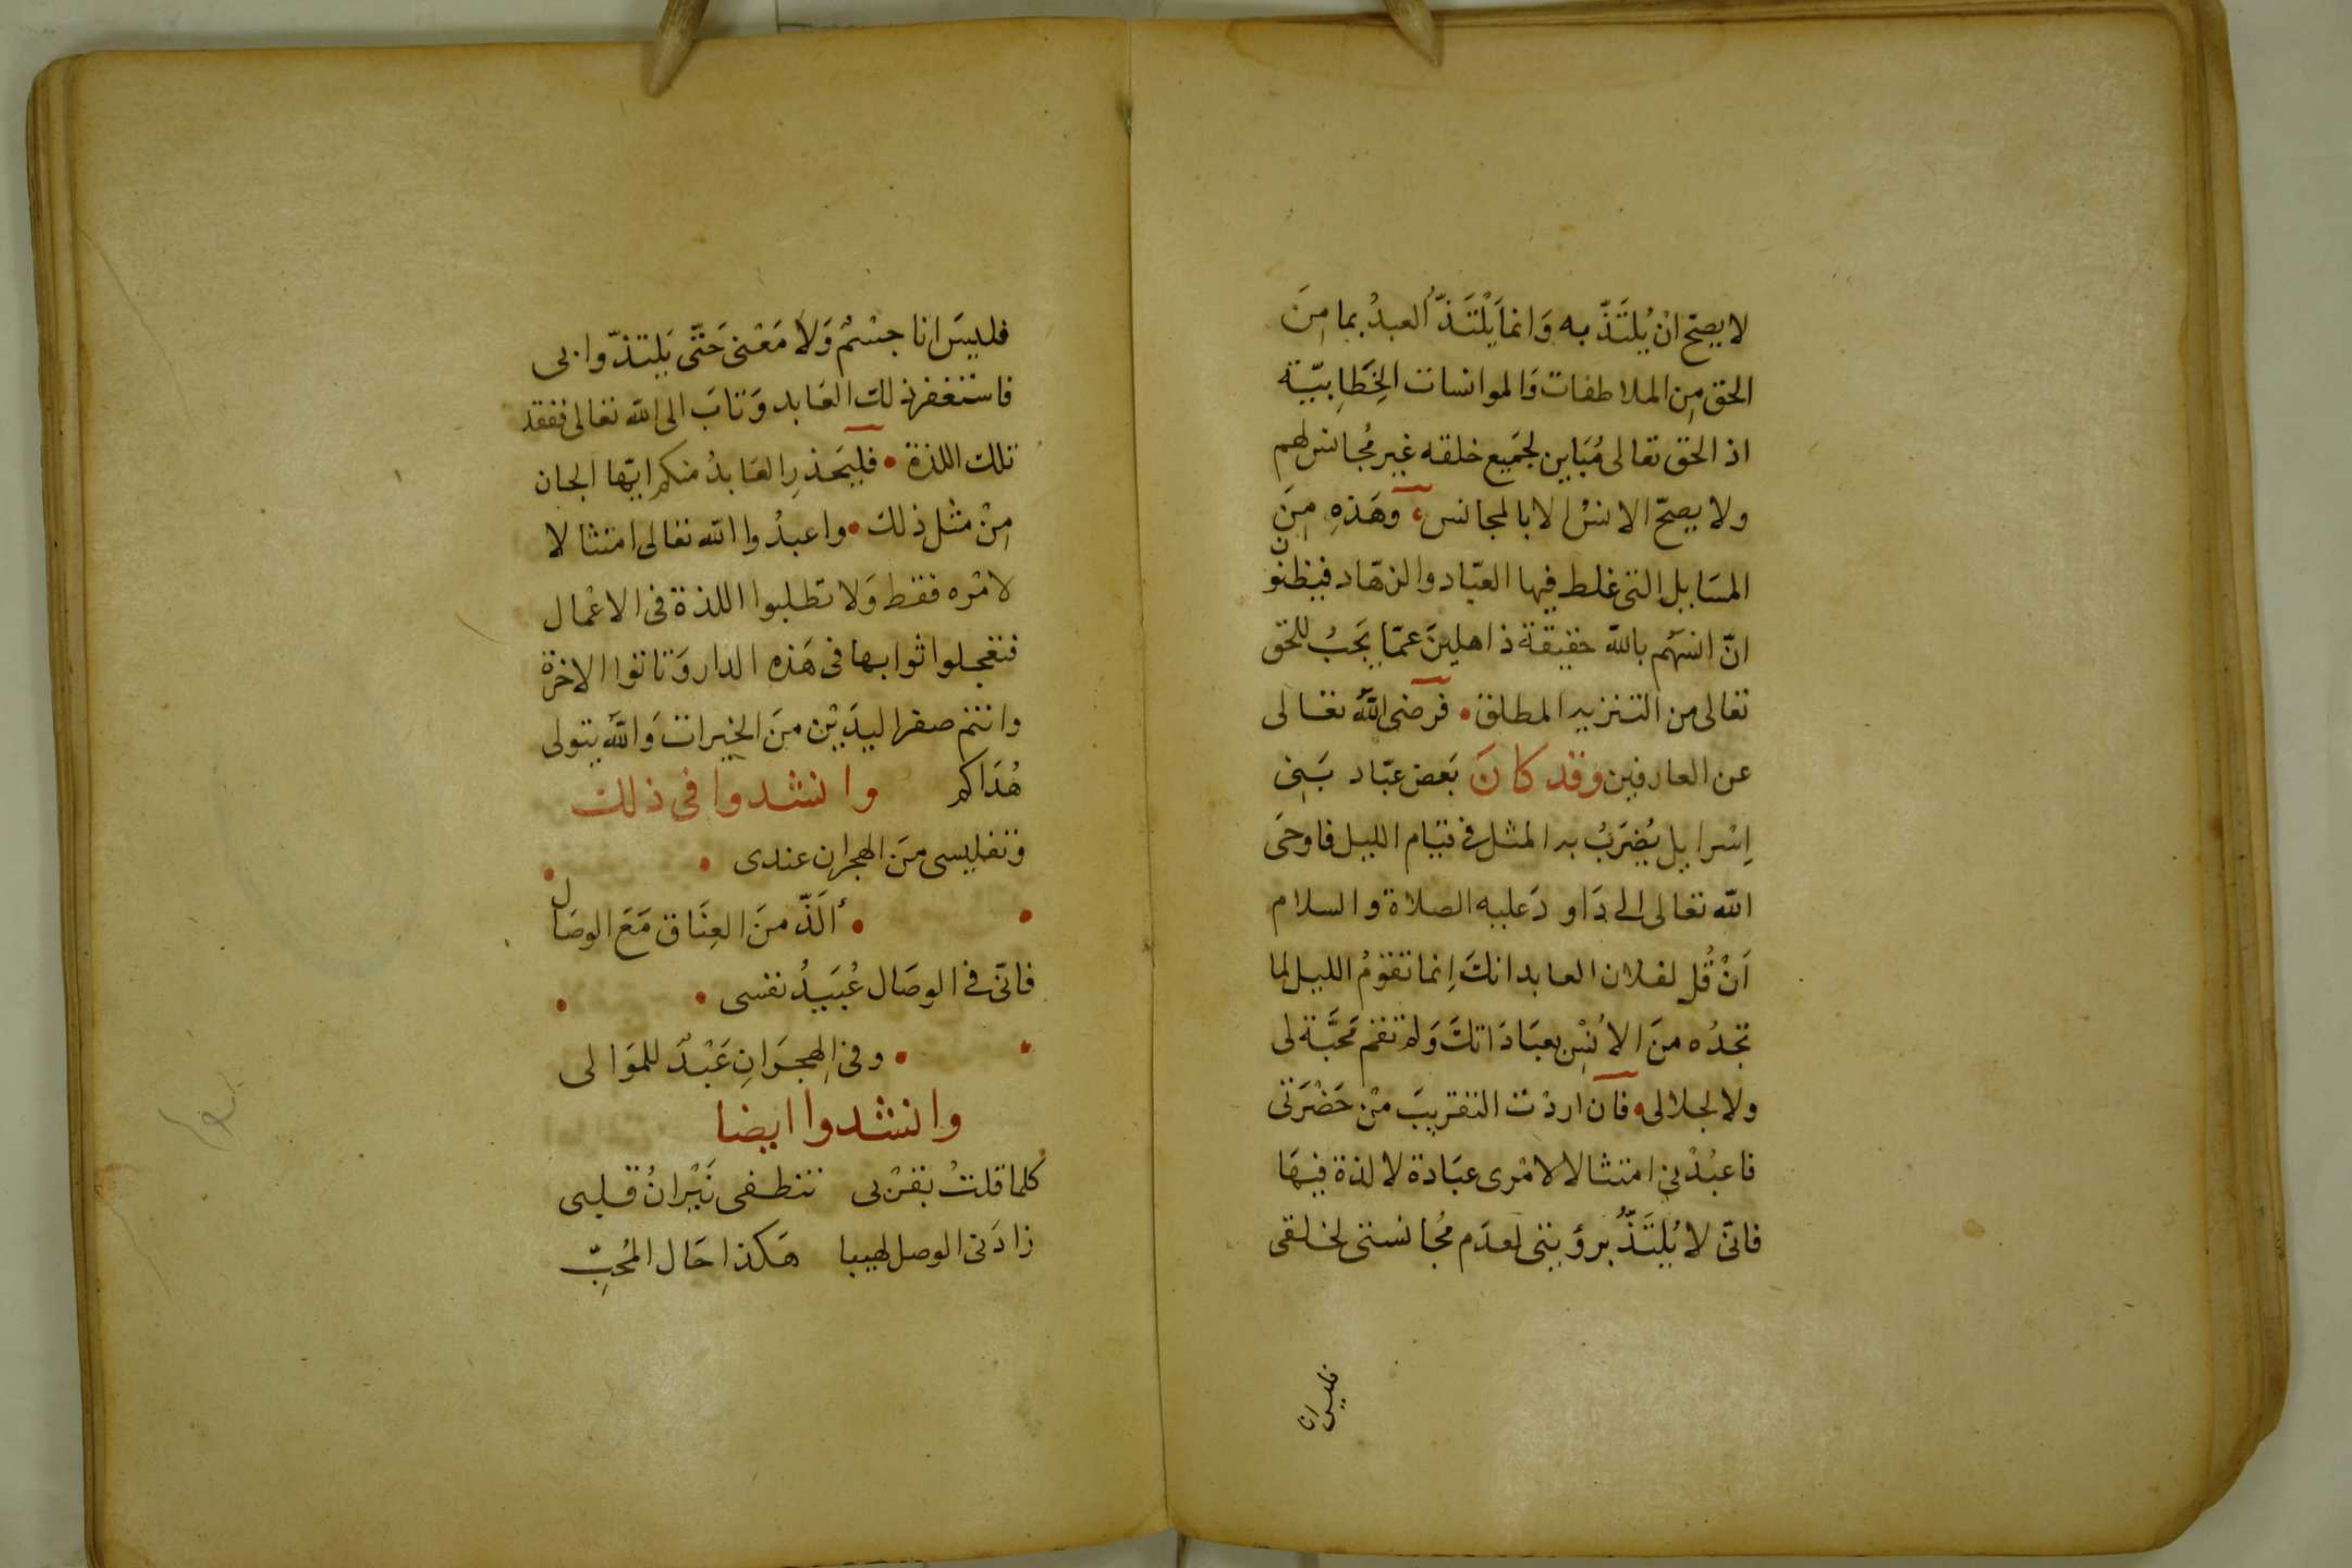 لا يصح انْ يُلتَذّ به وَانما يَلْتَذّ العبدُ بما مِنَ
الحق مِن الملاطفات وَالموانسات الخِطَابيّة
اذ الحق تعالى مُبَاين لجَميع خلقه غير مُجانس لهم
ولا يصحّ الانسْ الا بالمجانس، وهَذهِ مِنَ
المسَايل التى غلط فيها العبّاد والزهّاد فيظنّون
انّ انسَهُم باللّه حقيقة ذاهلِينَ عمّا يَجبُ للحق
تعالى من التنزيه المطلق • فرضى اللّه تعالى
عن العارفين وقد كانَ بَعض عبّاد بَنِى
اِسْرايل يُضرَبُ به المثل فى قيَام الليل فاوحَى
اللّه تعالى الى دَاودَ عليه الصلاة والسلام
اَنْ قُل لفلان العابد انكَ اِنما تقومُ الليل لما
تجدُه منَ الاُنسِ بعبَادَاتكَ وَلم تقم مَحَبَّة لى
ولا لجلالى • فان اردْت التقريبَ مْن حَضْرَتى
فاعبُدْنى امتثالا لامْرى عبَادة لا لذة فيهَا
فانّى لا يُلتَذُّ برؤيتى لعدَم مُجانستى لخلقى
فليس انا
فليسَ انا جسْمٌ وَلاَ مَعْنى حَتّى يَلتذّوا بى
فاستغفر ذلك العَابد وَتابَ الى اللّه تعالى ففقد
تلك اللذة • فليَحذرِ العَابدُ منكم ايّها الجان
مِنْ مثل ذلك • واعبدُوا اللّه تعالى امتثالا
لامْره فقط وَلا تطلبوا اللذة فى الاعْمال
فتعجلوا ثوابها فى هَذه الدار وَتاتوا الاخرة
وانتم صفر اليدَيْن منَ الخيرات وَاللّه يتولى
هُدَاكم وانشدوا فى ذلك
وتفليسى منَ الهجران عندى •
• ألَذّ منَ العِنَاق مَعَ الوصَال
فانّى فى الوصَال عُبَيدُ نفسى •
• وفى الهِجرَانِ عَبْدٌ للموَالى
وانشدوا ايضا
كلما قلتُ بقرْبى تنطفى نَيْرانُ قلبى
زادَنى الوصل لهيبا هَكذا حَال المُحبِّ